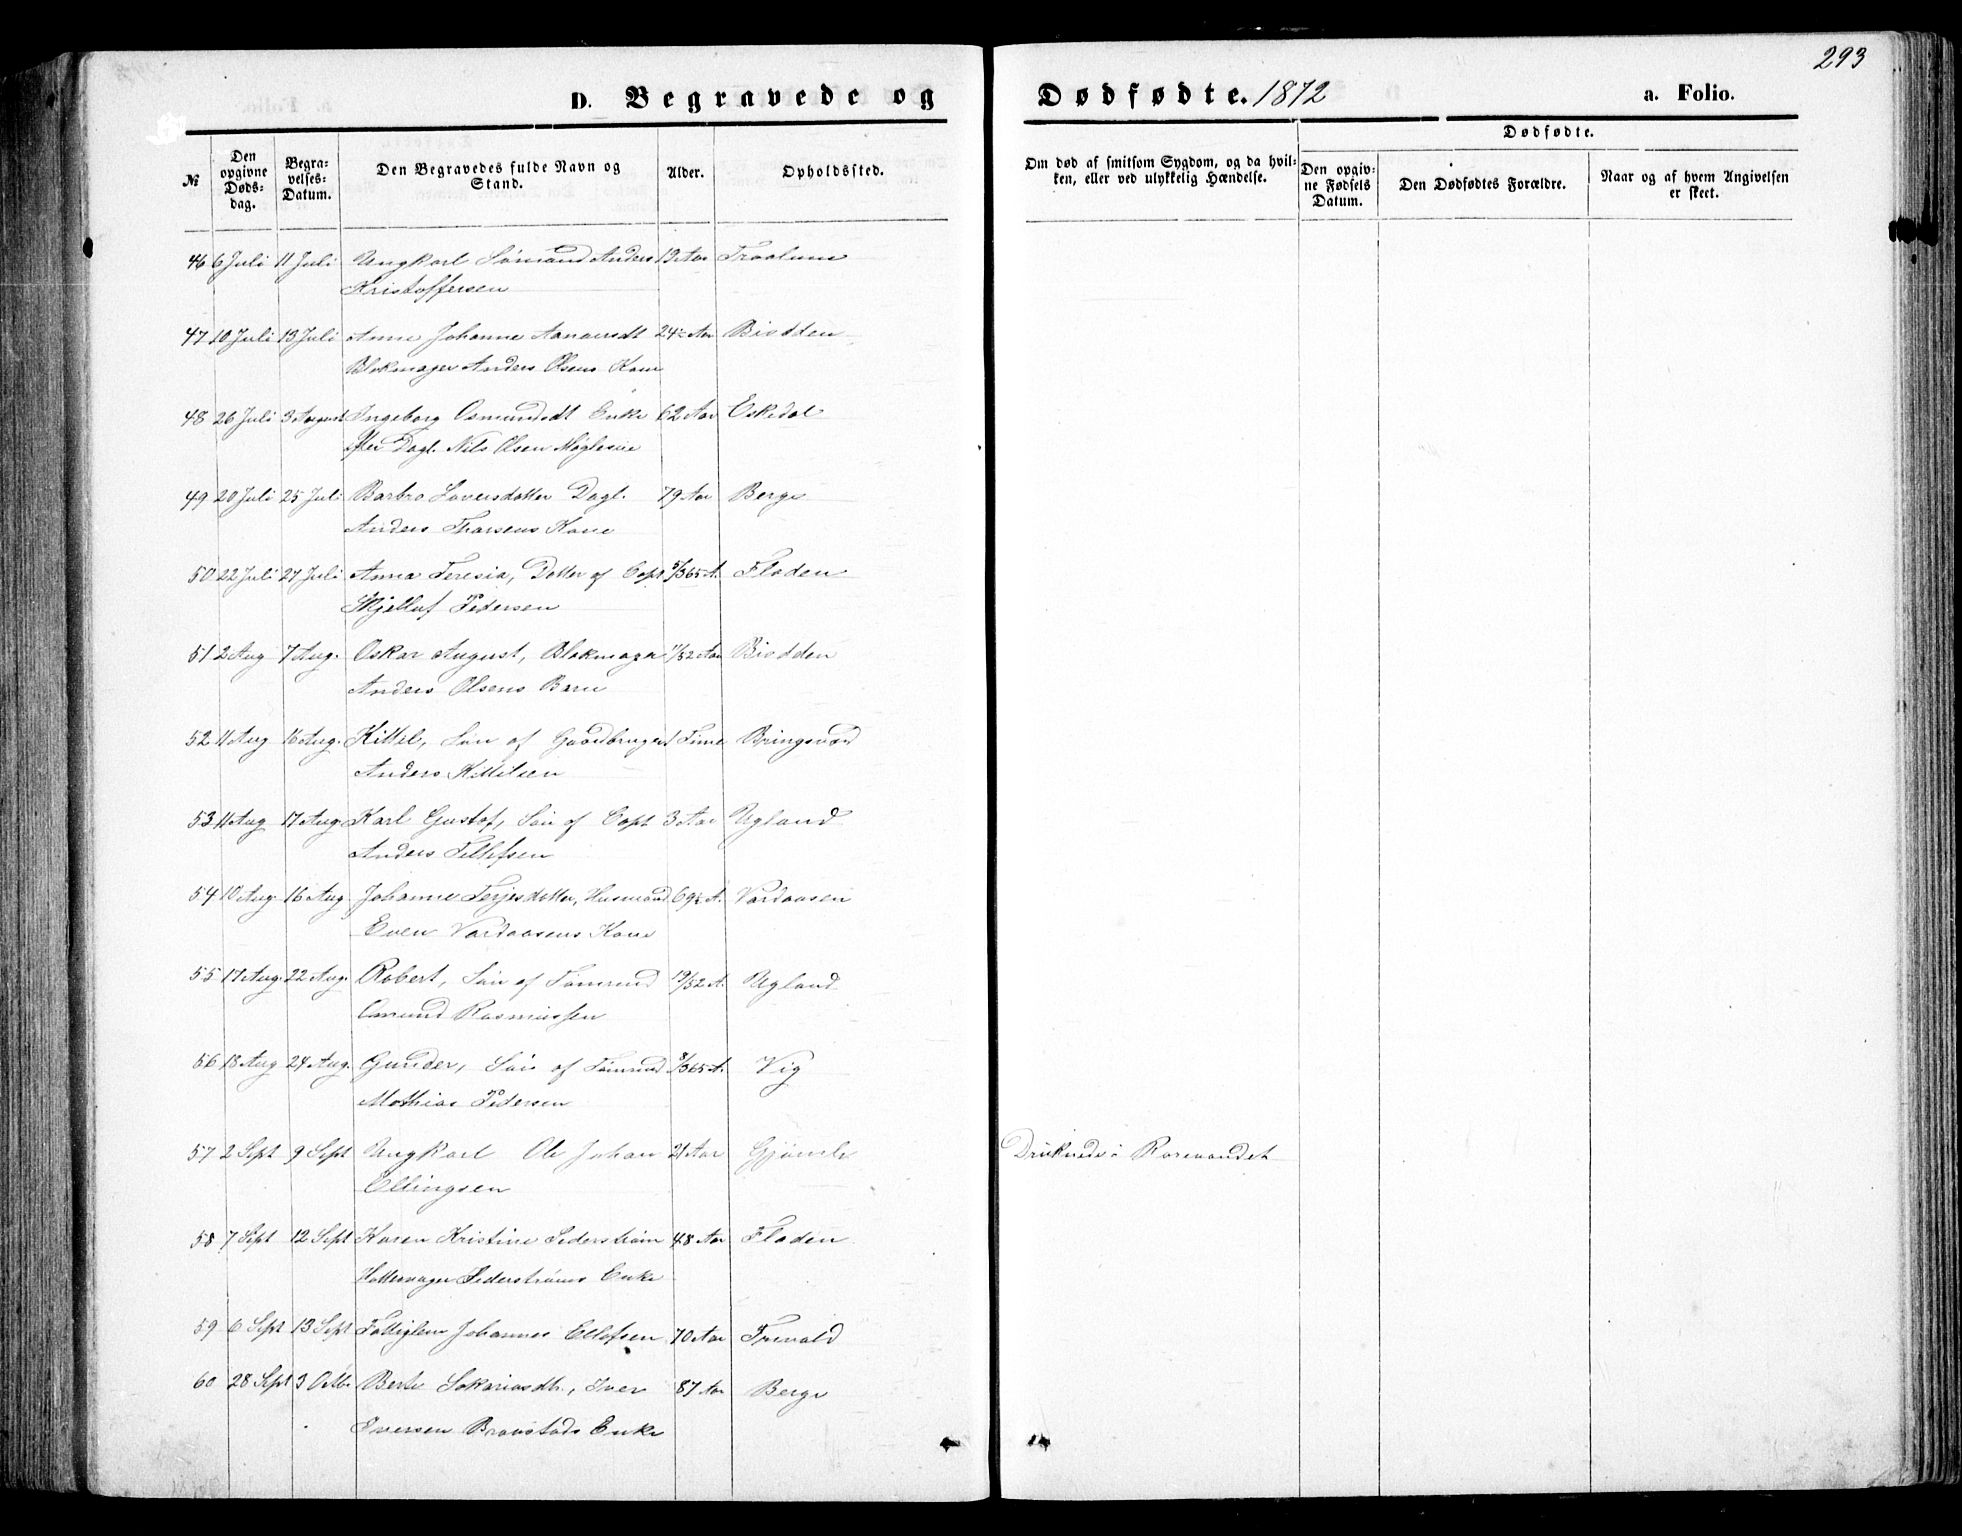 293
D. Begravede og Dødfødte. 1872 a. Folio.
№
Den opgivne Døds-dag.
Begra-velses-Datum.
Den Begravedes fulde Navn og Stand.
Alder.
Opholdssted.
Om død af smitsom Sygdom, og da hvil-ken, eller ved ulykkelig Hændelse.
Dødfødte.
Den opgiv-ne Fødsels Datum.
Den Dødfødtes Forældre.
Naar og af hvem Angivelsen er skeet.
46 6 Juli 11 Juli Ungkarl Sömand Anders 19 Aar
Kristoffersen
47 10 Juli 13 Juli Anne Johanne 24½ Aar Biodden
Blokmager Anders Olsens Kone
48 26 Juli 3 August Ingeborg Osmundsdt Enke 62 Aar Eskedal
efter Dagl. Nils Olsen
49 20 Juli 25 Juli Barbro Laversdatter Dagl. 79 Aar Berge
Anders Tharsens Kone
50 22 Juli 27 Juli Anna Teresia, Datter af Capt 5/365 A. Fladen
Pedersen
51 2 Aug 7 Aug. Oskar August, Blokmager 11/52 Aar Biodden
Anders Olsens Barn
52 11 Aug 16 Aug. Kittil, Sön af Gaardbruger 1 Time Bringsvær
Anders Kittilsen
53 11 Aug 17 Aug. Karl Gustaf, Sön af Capt 3 Aar Ugland
Anders Tellefsen
54 10 Aug. 16 Aug. Johanne Terjesdatter, Husmand 69½ A. Vardaasen
Even Vardaasens Kone
55 17 Aug. 22 Aug. Robert, Sön af Tömmrmd 19/52 A. Ugland
Omund Rasmussen
56 18 Aug 24 Aug. Gunder, Sön af Tömmrmd 8/365 A. Vig
Mathias Pedersen
57 2 Sept 9 Sept Ungkarl Ole Johan 21 Aar Gjömle Druknede i Rorevandet
Ellingsen
58 7 Sept 12 Sept Karen Kristine Sederström 48 Aar Fladen
Hattemager Sederströms Enke
59 6 Sept 13 Sept Fattiglem Johannes Ellefsen 70 Aar Trevald
60 28 Sept 3 Octb. Berte Sakariasdtr., Iver 87 Aar Berge
Eversen Braastads Enke